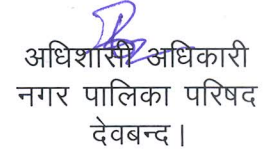 अधिशासी अधिकारी
नगर पालिका परिषद
देवबन्द।